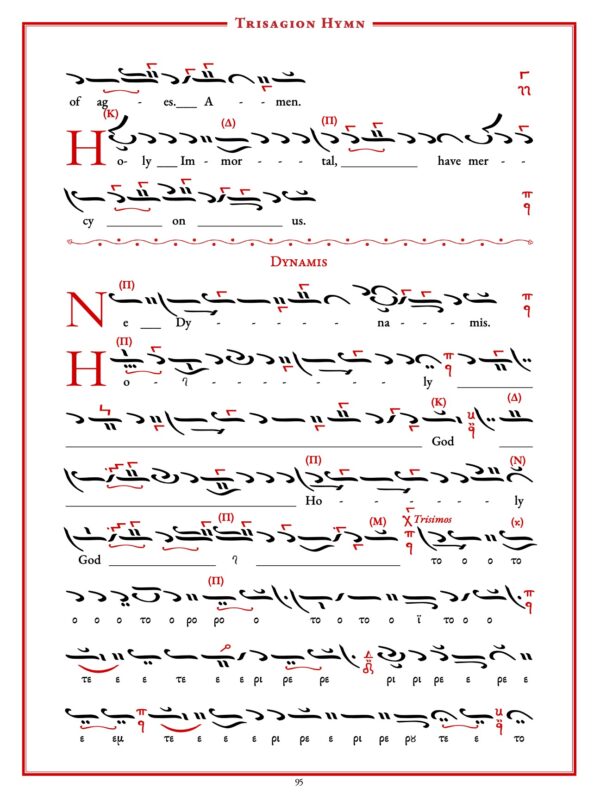 Trisagion Hymn
of ag - es.___ A - - men.
(K) (Δ) (Π)
Holy ___ Im - mor - - - tal, ______________ have mer - -
cy ________ on ____________ us.
Dynamis
(Π)
Ne ___ Dy - - - - - - na - - - mis.
(Π)
Ho - - - - - - - - - - - ly ____________
(K) (Δ)
God
(Π) (N)
Ho - - - - - ly
(Π) (M) Trisimos (κ)
God ____________ ______________ το ο ο το
(Π)
ο ο ο το ο ρο ρο ο το ο το ο ϊ το ο ο
τε ε ε τε ε ε ρι ρε ρε ρι ρι ρε ε ρε
ε εμ τε ε ε ε ρι ρε ε ρι ρε ρȣ τε ε το
95